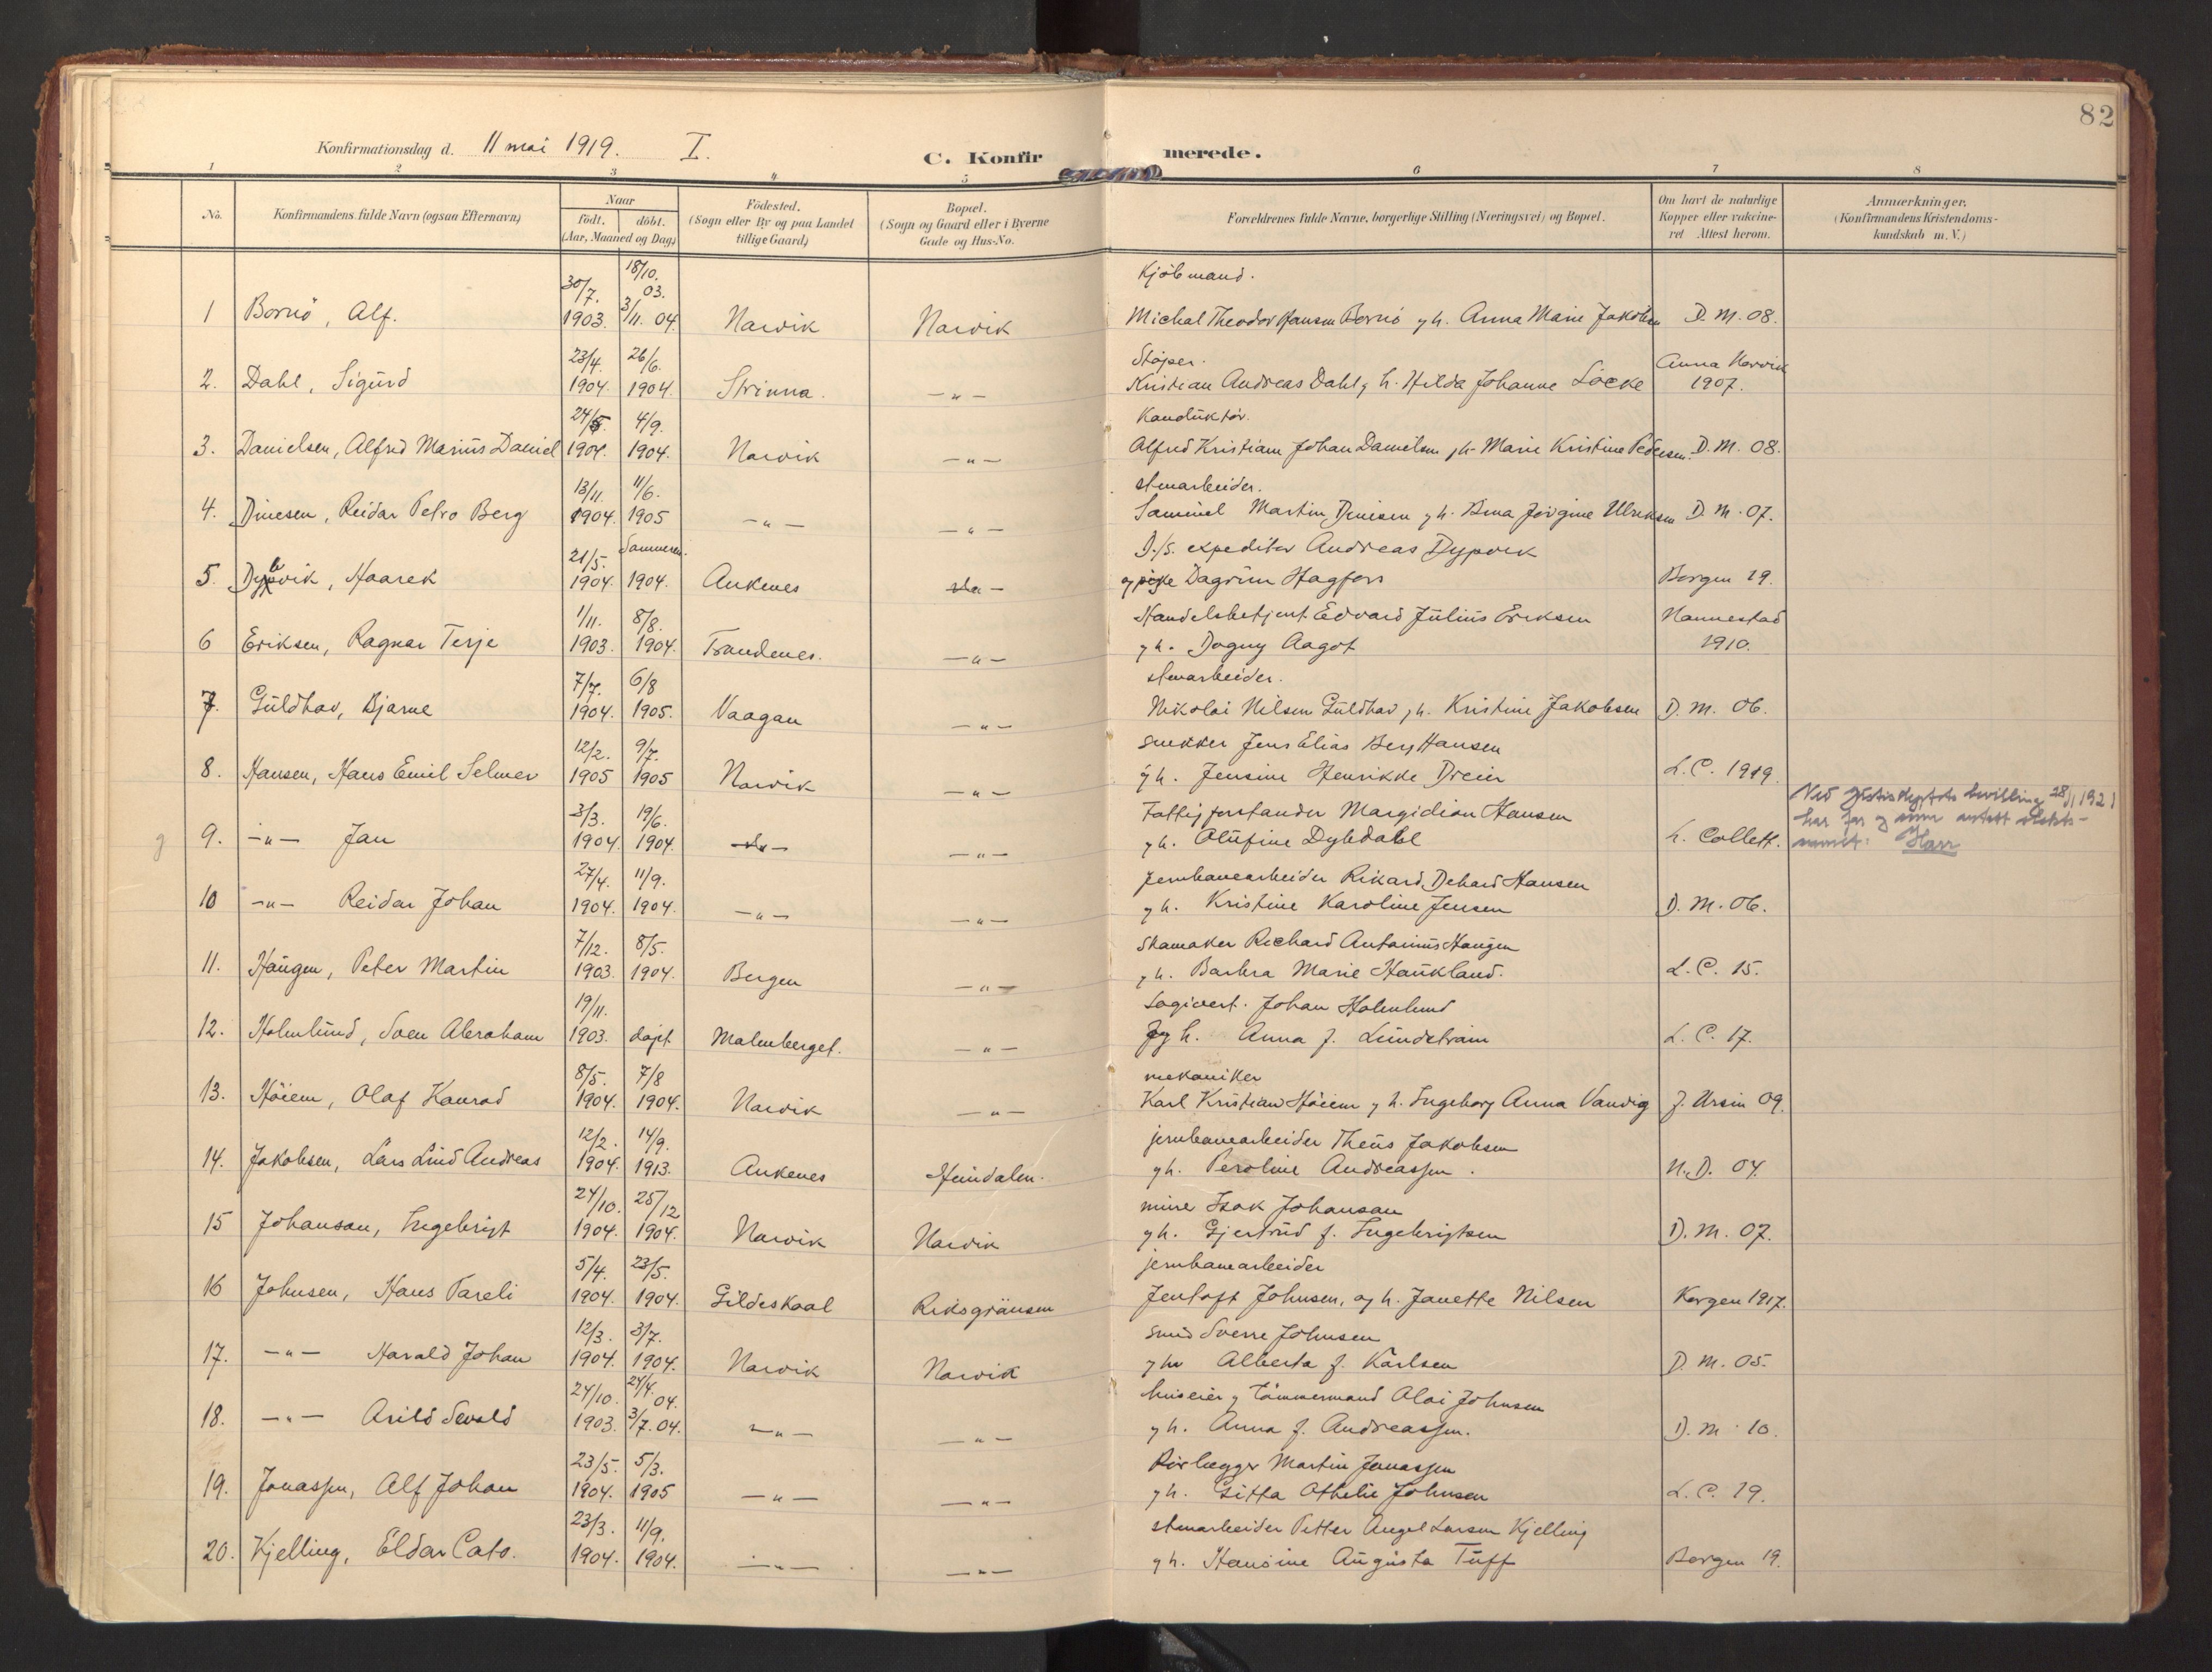 82
Konfirmationsdag d. 11 mai 1919. I. C. Konfirmerede.
1 2 3 4 5 6 7 8
No. Konfirmandens fulde Navn (ogsaa Efternavn) Naar födt. döbt. (Aar, Maaned og Dag) Födested. (Sogn eller By og paa Landet tillige Gaard) Bopæl. (Sogn og Gaard eller i Byerne Gade og Hus-No. Forældrenes fulde Navne, borgerlige Stilling (Næringsvei) og Bopæl. Om havt de naturlige Kopper eller vakcineret Attest herom. Anmærkninger. (Konfirmandens Kristendomskundskab m. V.)
30/7. 18/10. 03. Kjöbmand.
1 Bornö, Alf. 1903. 3/11. 04. Narvik Narvik Michal Theodor Hansen Bornö g h. Anna Marie Jakobsen D. M. 08.
23/4. 26/6. Stöper. Anna Narvik
2. Dahl, Sigurd 1904. 1904. Strinna. -"- Kristian Andreas Dahl g h. Hilda Johanne Löcke 1907.
24/5. 4/9. Konduktör.
3. Danielsen, Alfred Marius Daniel 1904. 1904. Narvik -"- Alfred Kristian Johan Danielsen g h. Marie Kristine Pedersen. D. M. 08.
13/11. 11/6. stenarbeider.
4. Dinesen, Reidar Petro Berg 1904. 1905 -"- -"- Samuel Martin Dinesen g h. Bina Jörgine Ulriksen D. M. 07.
21/5. Sommeren. D./S. expeditör Andreas Dypvik
5. Dybvik, Haarek 1904. 1904. Ankenes -"- g pige Dagrun Hagfors Borgen 19.
1/11. 8/8. Handelsbetjent Edvard Julius Eriksen Hannestad
6 Eriksen, Ragnar Terje 1903. 1904. Trondenes. -"- g h. Dagny Aagot 1910.
7/7. 6/8 stenarbeider.
7. Guldhav, Bjarne 1904. 1905. Vaagan -"- Nikolai Nilsen Guldhav g h. Kristine Jakobsen D. M. 06.
12/2. 9/7. snekker Jens Elias Berg Hansen
8. Hansen, Hans Emil Selmer 1905 1905 Narvik -"- g h. Jensine Henrikke Dreier L. C. 1919.
3/3. 19/6. Fattigforstander Margidian Hansen Ved bevilling 28/1 1921
9. -"- Jan 1904. 1904. -"- -"- g h. Olufine Dybdahl L. Collett. har far g mor antatt Harr
27/4. 11/9. Jernbanearbeider Rikard Dehard Hansen
10 -"- Reidar Johan 1904. 1904. -"- -"- g h. Kristine Karoline Jensen D. M. 06.
7/12. 8/5. skomaker Richard Antonius Haugen
11. Haugen, Peter Martin 1903. 1904. Bergen -"- g h. Barbra Marie Haukland. L. C. 15.
19/11. Logivert. Johan Holmlund
12. Holmlund, Sven Abraham 1903. döpt. Malmberget. -"- g h. Anna f. Lundström L. C. 17.
8/5. 7/8 mekaniker
13. Höiem, Olaf Konrad 1904. 1904. Narvik -"- Karl Kristian Höiem g h. Ingeborg Anna Vanvig J. Ursin 09.
12/2. 14/9. jernbanearbeider Theus Jakobsen
14. Jakobsen, Lars Lind Andreas 1904. 1913. Ankenes Hundalen. g h. Peroline Andreassen. N. D. 04.
24/10. 25/12 mine Isak Johansen
15 Johanson, Ingebrigt 1904. 1904. Narvik Narvik g h. Gjertrud f. Ingebrigtsen D. M. 07.
5/4. 23/5. jernbanearbeider
16 Johnsen, Hans Pareli 1904. 1904. Gildeskaal Riksgränsen Jentoft Johnsen, og h. Janette Nilsen Korgen 1917.
12/3. 3/7. smed Sverre Johnsen
17. -"- Harald Johan 1904. 1904. Narvik Narvik g h. Alberta f. Karlsen D. M. 05.
24/10. 24/4. 04. huseier g tömmermand Olai Johnsen
18. -"- Arild Sevald 1903. 3/7. 04. -"- -"- g h. Anna f. Andreassen. D. M. 10.
23/5. 5/3. Rörlægger Martin Jonassen
19. Jonassen, Alf Johan 1904. 1905 -"- -"- g h. Gitta Othelie Johnsen L. C. 19.
23/3. 11/9. stenarbeider Petter Angel Larsen Kjelling
20. Kjelling, Eldar Cato. 1904. 1904. -"- -"- g h. Hansine Augusta Tuff Borgen 19.